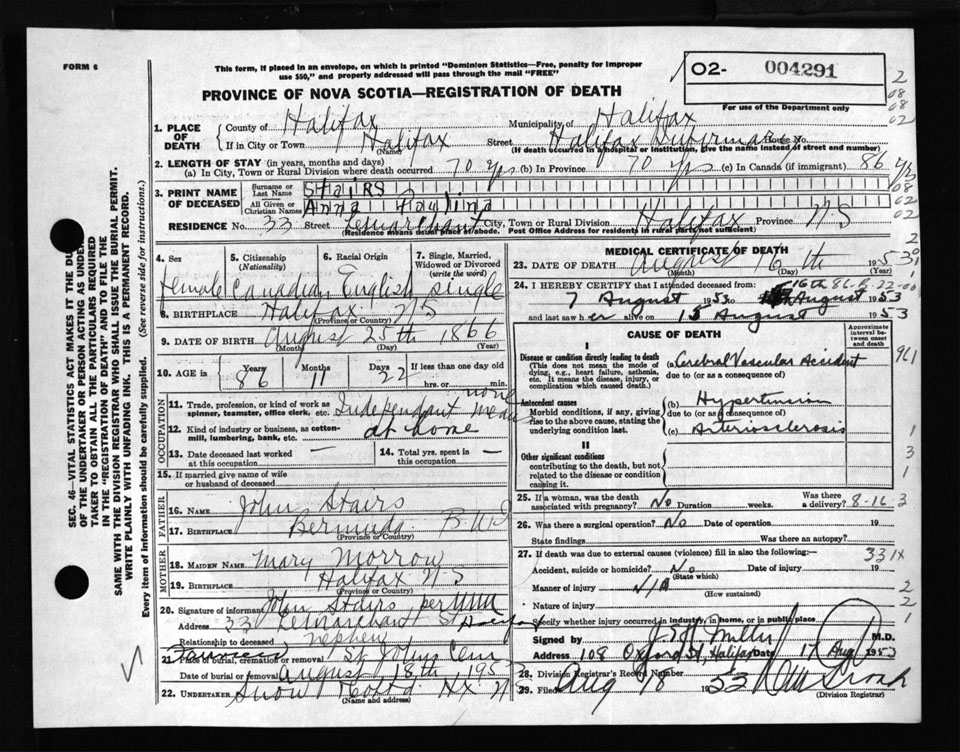 FORM 6
This form, if placed in an envelope, on which is printed "Dominion Statistics—Free, penalty for improper
use $50," and properly addressed will pass through the mail "FREE"
PROVINCE OF NOVA SCOTIA—REGISTRATION OF DEATH
02- 004291
For use of the Department only
2
08
08
02
1. PLACE OF DEATH
County of Halifax Municipality of Halifax
If in City or Town Halifax Street Halifax Infirmary House No.
(Name) (If death occurred in a hospital or institution, give the name instead of street and number)
2. LENGTH OF STAY (in years, months and days)
(a) In City, Town or Rural Division where death occurred 70 yrs (b) In Province 70 yrs (c) In Canada (if immigrant) 86 yrs
3. PRINT NAME OF DECEASED
Surname or Last Name Stairs
All Given or Christian Names Anna Paulina
08
02
02
RESIDENCE No. 33 Street LeMarchant City, Town or Rural Division Halifax Province N-S
(Residence means usual place of abode. Post Office Address for residents in rural parts not sufficient)
4. Sex Female
5. Citizenship (Nationality) Canadian
6. Racial Origin English
7. Single, Married, Widowed or Divorced (write the word) Single
8. BIRTHPLACE Halifax N-S
(Province or Country)
9. DATE OF BIRTH August 25th 1866
(Month) (Day) (Year)
10. AGE in Years 86 Months 11 Days 22 If less than one day old
hrs. or min.
11. Trade, profession, or kind of work as spinner, teamster, office clerk, etc. none Independant Means
12. Kind of industry or business, as cotton-mill, lumbering, bank, etc. at home
OCCUPATION
13. Date deceased last worked at this occupation —
14. Total yrs. spent in this occupation —
15. If married give name of wife or husband of deceased
FATHER
16. NAME John Stairs
17. BIRTHPLACE Bermuda B.W.I
(Province or Country)
MOTHER
18. MAIDEN NAME Mary Morrow
19. BIRTHPLACE Halifax N-S
(Province or Country)
20. Signature of informant John Stairs per
Address 33 LeMarchant St Halifax
Relationship to deceased nephew
21. Place of burial, cremation or removal St Johns Cem
Date of burial or removal August 18th 1953
22. UNDERTAKER Snow & Co Ltd Hx N-S
(Name and address)
MEDICAL CERTIFICATE OF DEATH
23. DATE OF DEATH August 16th 1953
(Month) (Day) (Year)
24. I HEREBY CERTIFY that I attended deceased from:
7 August 1953 to 16th August 1953
and last saw her alive on 15 August 1953
CAUSE OF DEATH
Approximate interval between onset and death
I
Disease or condition directly leading to death
(This does not mean the mode of dying, e.g., heart failure, asthenia, etc. It means the disease, injury, or complication which caused death.)
(a) Cerebral Vascular Accident
due to (or as a consequence of)
Antecedent causes
Morbid conditions, if any, giving rise to the above cause, stating the underlying condition last.
(b) Hypertension
due to (or as a consequence of)
(c) Arteriosclerosis
II
Other significant conditions
contributing to the death, but not related to the disease or condition causing it.
25. If a woman, was the death associated with pregnancy? No Duration weeks. Was there a delivery?
8-16-3
26. Was there a surgical operation? No Date of operation 19
State findings Was there an autopsy?
27. If death was due to external causes (violence) fill in also the following:—
331X
Accident, suicide or homicide? No Date of injury 19
(State which)
Manner of injury N/A
(How sustained)
Nature of injury
Specify whether injury occurred in industry, in home, or in public place
Signed by M.D.
Address 108 Oxford St, Halifax Date 17 Aug 1953
28. Division Registrar's Record Number
29. Filed Aug 18 1953
(Division Registrar)
SEC. 46—VITAL STATISTICS ACT MAKES IT THE DUTY
OF THE UNDERTAKER OR PERSON ACTING AS UNDERTAKER TO OBTAIN ALL THE PARTICULARS REQUIRED
IN THE "REGISTRATION OF DEATH" AND TO FILE THE
SAME WITH THE DIVISION REGISTRAR WHO SHALL ISSUE THE BURIAL PERMIT.
WRITE PLAINLY WITH UNFADING INK. THIS IS A PERMANENT RECORD.
Every item of information should be carefully supplied. (See reverse side for instructions.)